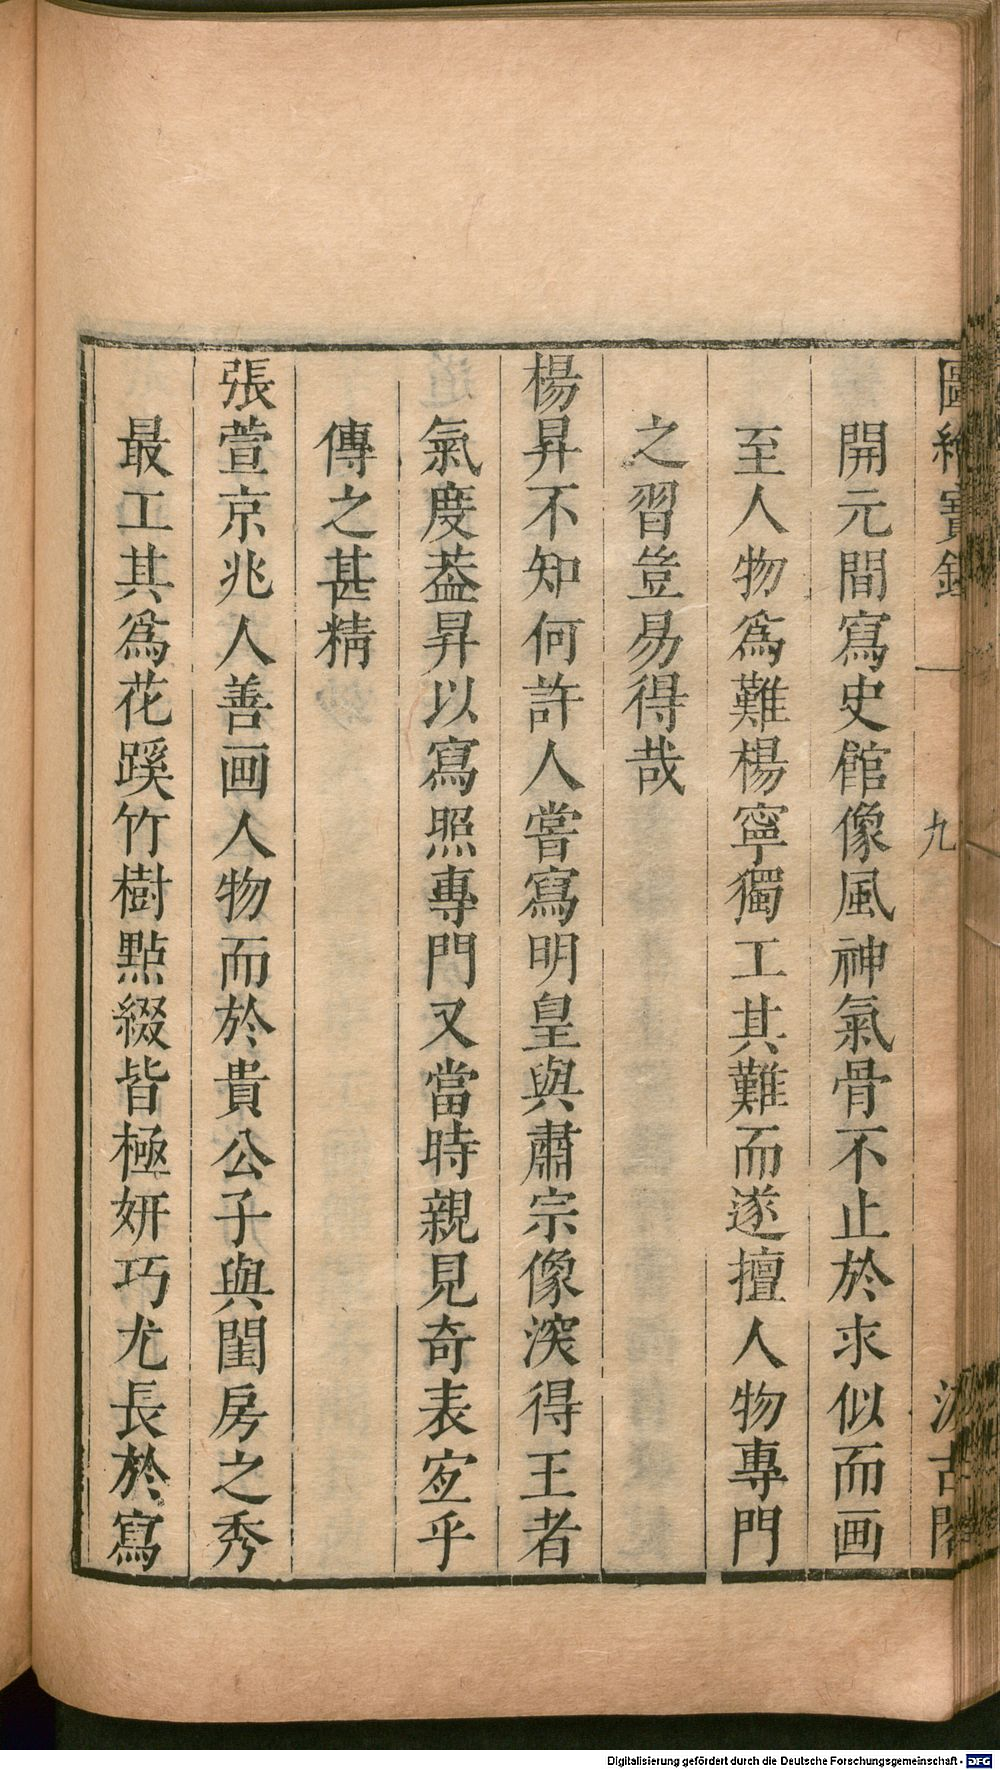 圖繪寶鑑 一 九 汲古閣
開元間寫史館像風神氣骨不止於求似而画
至人物爲難楊寧獨工其難而遂擅人物專門
之習豈易得哉
楊昇不知何許人嘗寫明皇與肅宗像深得王者
氣度葢昇以寫照專門又當時親見奇表宐乎
傳之甚精
張萱京兆人善画人物而於貴公子與閨房之秀
最工其爲花蹊竹樹點綴皆極妍巧尤長於寫
Digitalisierung gefördert durch die Deutsche Forschungsgemeinschaft - DFG